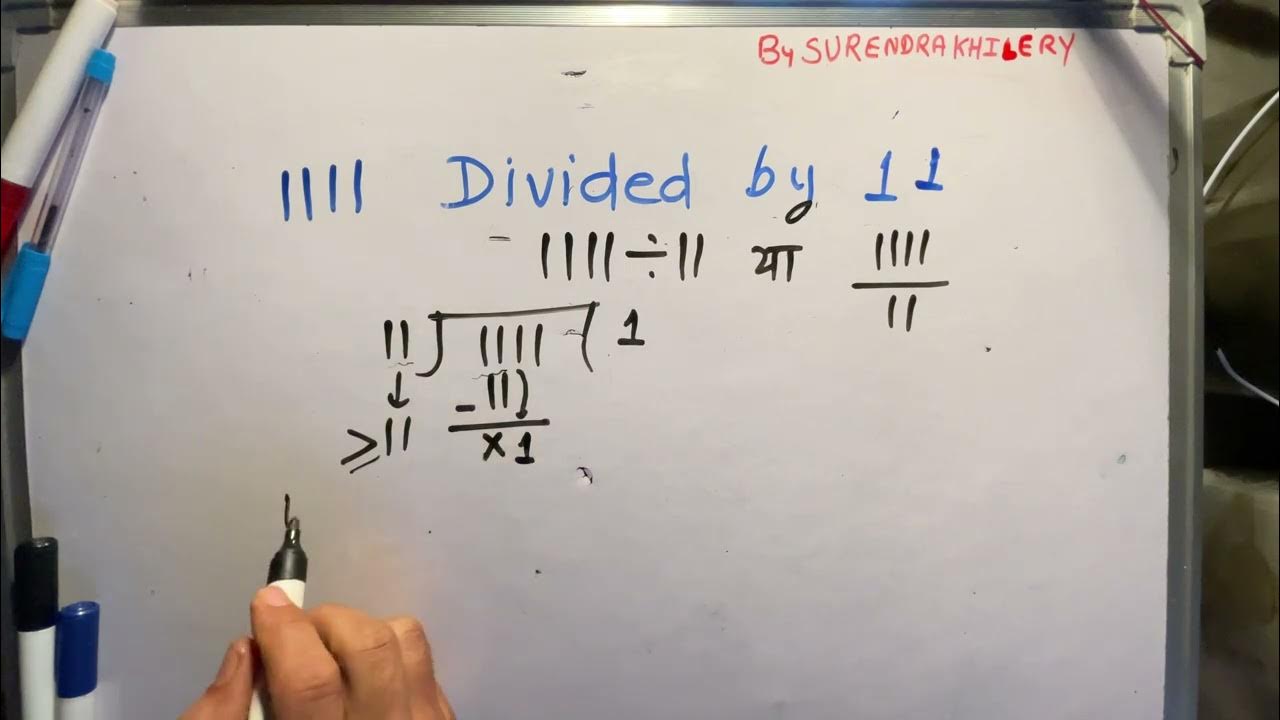 By SURENDRA KHILERY
1111 Divided by 11
1111 ÷ 11 या 1111/11
11 ) 1111 ( 1
↓ - 11↓
≥ 11 × 1